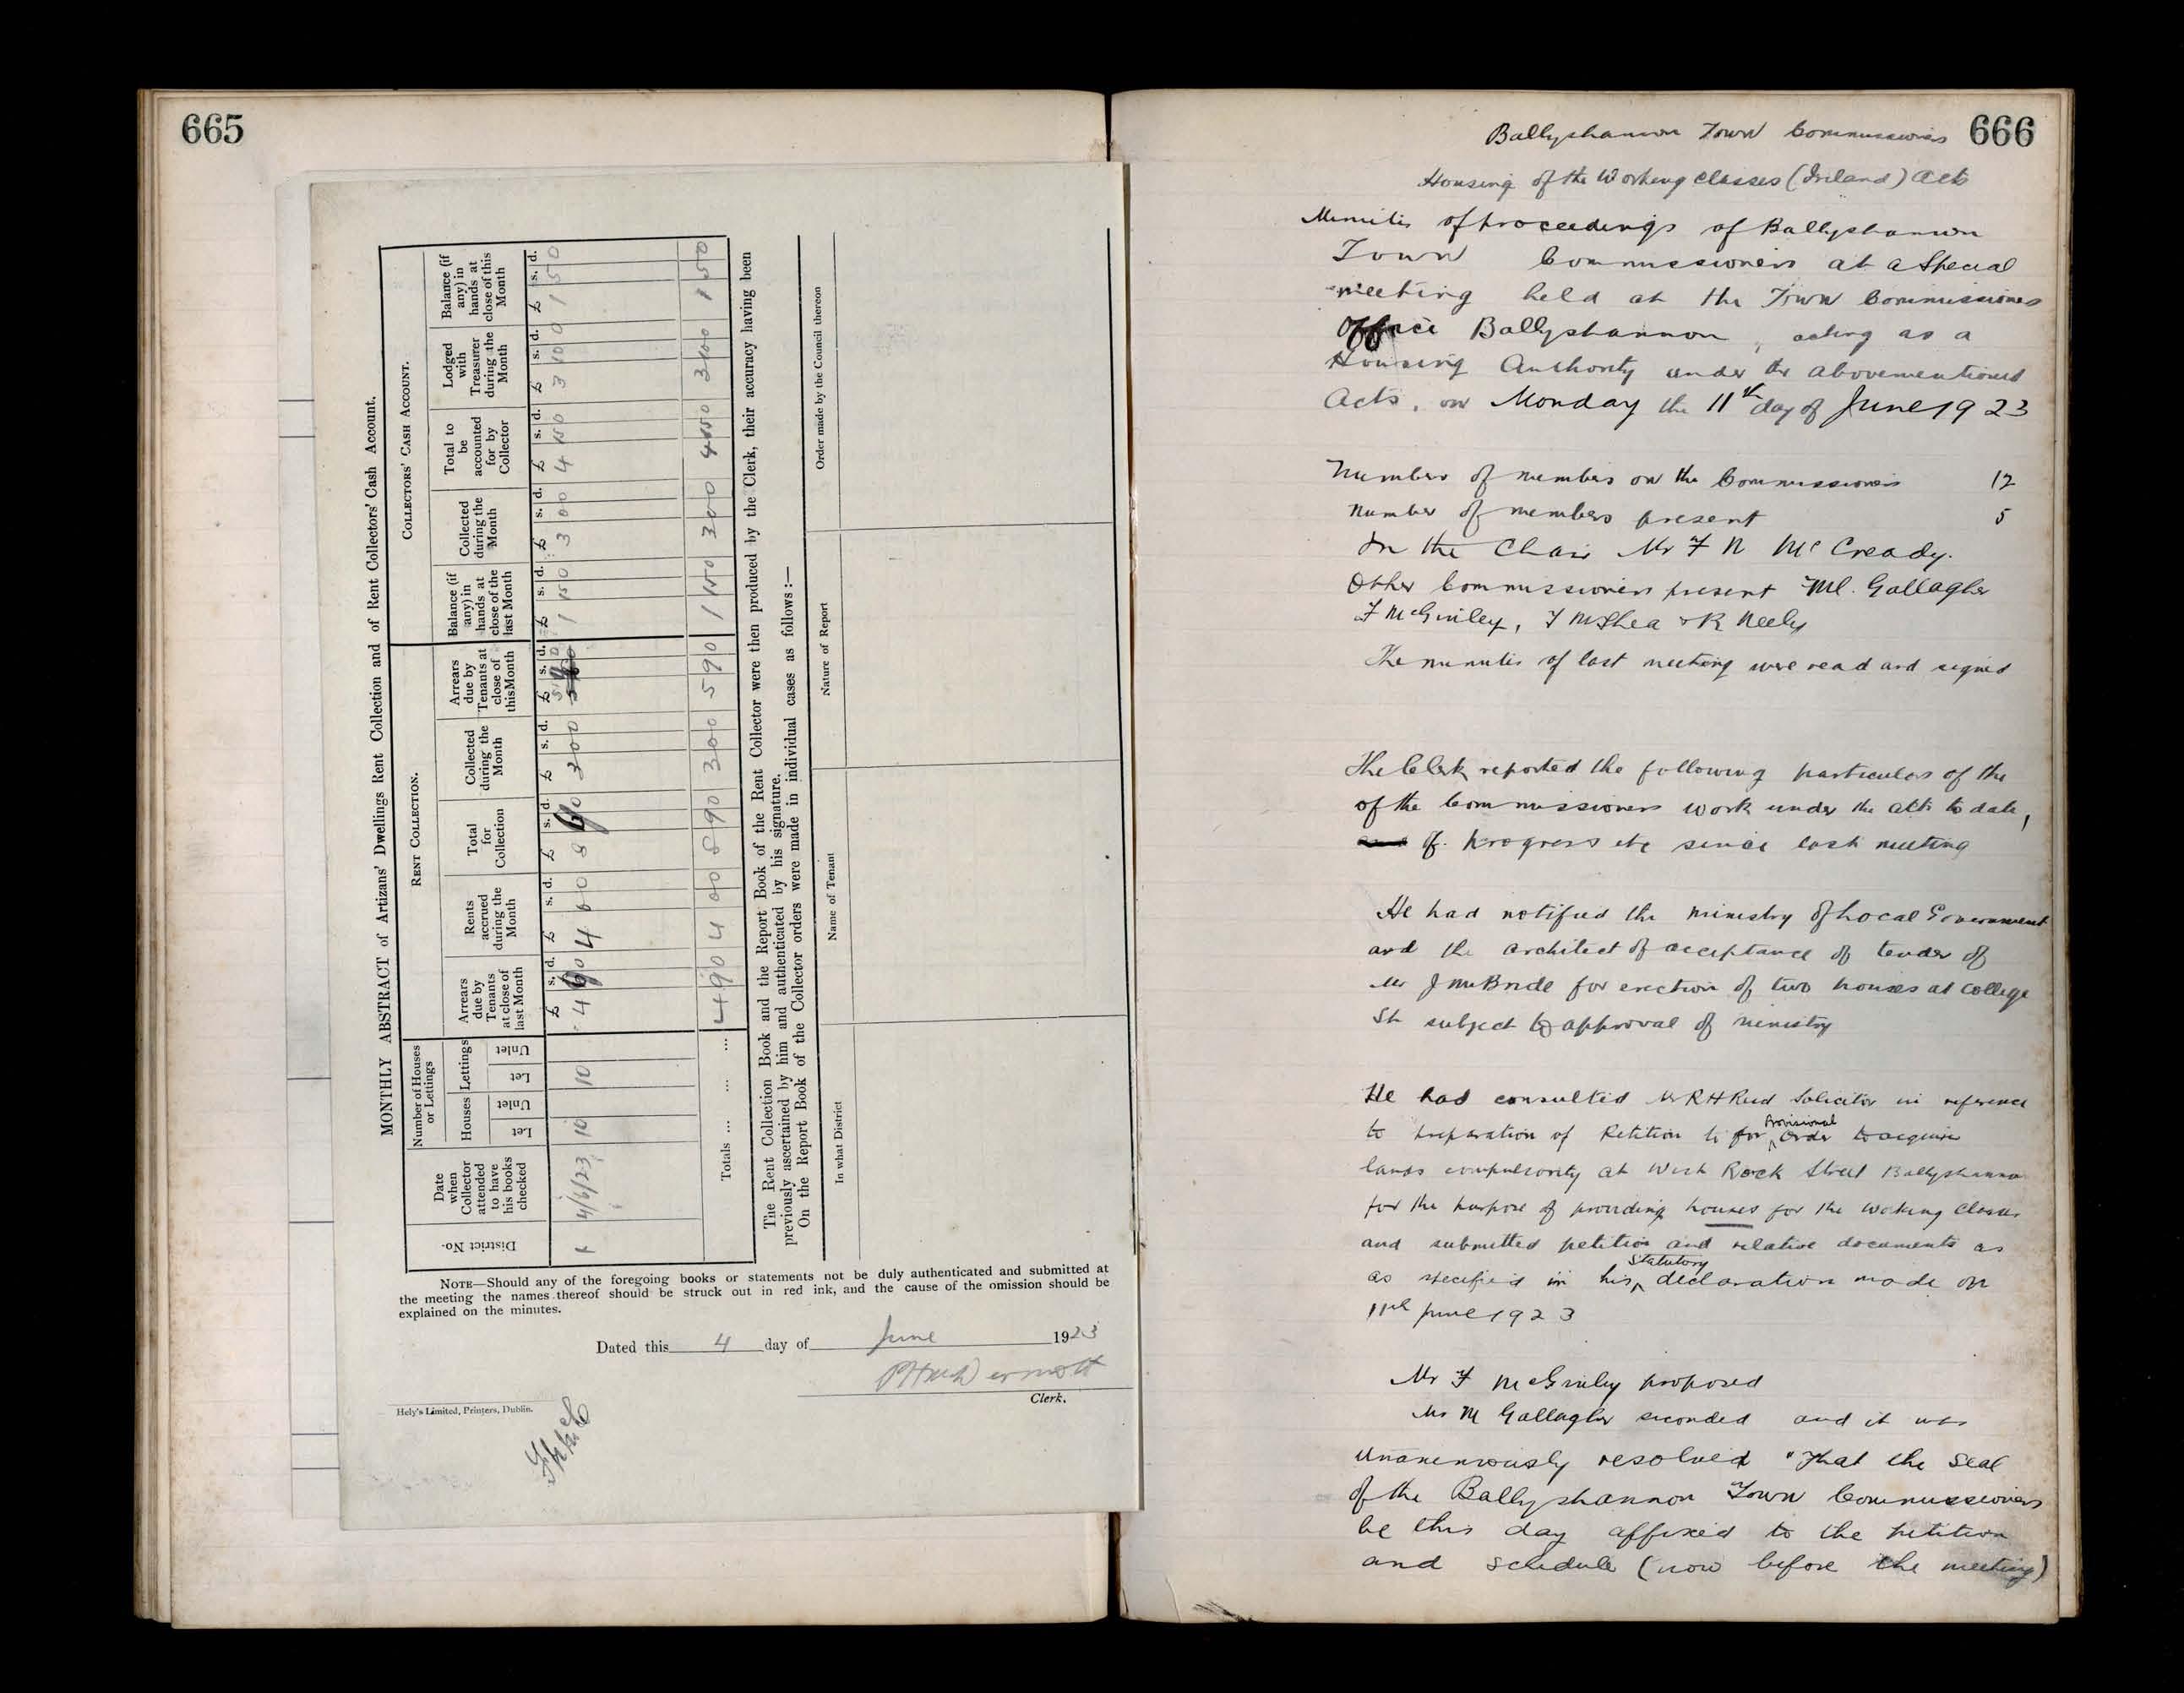 665
MONTHLY ABSTRACT of Artizans' Dwellings Rent Collection and of Rent Collectors' Cash Account.
District No.
Date when Collector attended to have his books checked
Number of Houses or Lettings
Houses
Lettings
Let
Unlet
Let
Unlet
RENT COLLECTION.
Arrears due by Tenants at close of last Month
Rents accrued during the Month
Total for Collection
Collected during the Month
Arrears due by Tenants at close of this Month
COLLECTORS' CASH ACCOUNT.
Balance (if any) in hands at close of the last Month
Collected during the Month
Total to be accounted for by Collector
Lodged with Treasurer during the Month
Balance (if any) in hands at close of this Month
£ s. d. £ s. d. £ s. d. £ s. d. £ s. d. £ s. d. £ s. d. £ s. d. £ s. d. £ s. d.
4/6/23 10 10
Totals ... ... ... 4 9 0 4 0 0 8 9 0 3 0 0 5 9 0 1 15 0 3 0 0 4 15 0 3 10 0 1 5 0
The Rent Collection Book and the Report Book of the Rent Collector were then produced by the Clerk, their accuracy having been
previously ascertained by him and authenticated by his signature.
On the Report Book of the Collector orders were made in individual cases as follows :—
In what District
Name of Tenant
Nature of Report
Order made by the Council thereon
NOTE—Should any of the foregoing books or statements not be duly authenticated and submitted at
the meeting the names thereof should be struck out in red ink, and the cause of the omission should be
explained on the minutes.
Dated this 4 day of June 1923
Clerk.
Hely's Limited, Printers, Dublin.
Ballyshannon Town Commissioners 666
Housing of the Working Classes (Ireland) Acts
Minutes of proceedings of Ballyshannon
Town Commissioners at a Special
meeting held at the Town Commissioners
Office Ballyshannon, acting as a
Housing Authority under the abovementioned
Acts, on Monday the 11th day of June 1923
Number of members on the Commissioners 12
Number of members present 5
In the Chair Mr F N McCready.
Other Commissioners present Ml. Gallagher
F McGinley, T McShea & R Neely
The minutes of last meeting were read and signed
The Clerk reported the following particulars of the
of the Commissioners work under the acts to date,
of progress etc since last meeting
He had notified the ministry of Local Government
and the architect of acceptance of tender of
Mr J McBride for erection of two houses at College
St subject to approval of ministry
He had consulted Mr R H Reid Solicitor in reference
to preparation of Petition to for Provisional Order to acquire
lands compulsorily at West Rock Street Ballyshannon
for the purpose of providing houses for the working Classes
and submitted petition and relative documents as
as specified in his Statutory declaration made on
11th June 1923
Mr F McGinley proposed
Mr M Gallagher seconded and it was
unanimously resolved "That the Seal
of the Ballyshannon Town Commissioners
be this day affixed to the petition
and schedule (now before the meeting)